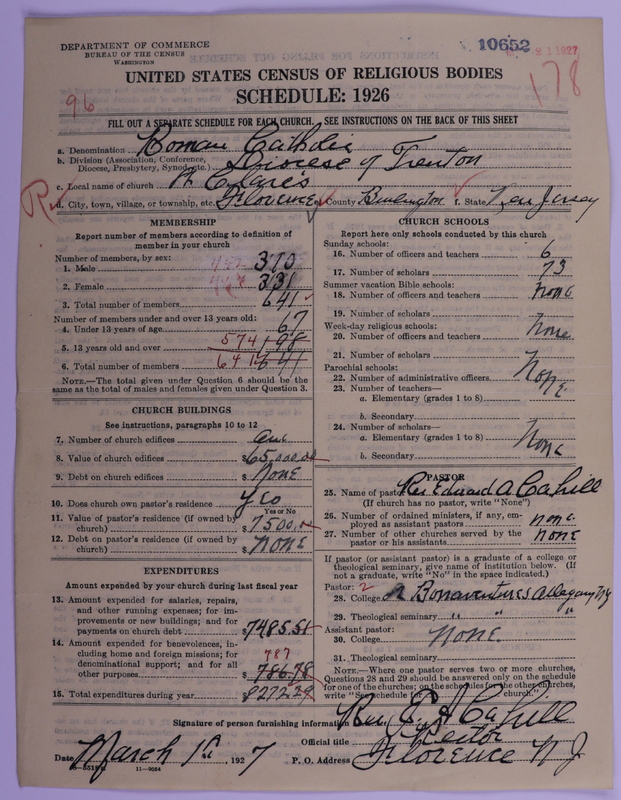 DEPARTMENT OF COMMERCE
BUREAU OF THE CENSUS
WASHINGTON
10652
1927
178
96
UNITED STATES CENSUS OF RELIGIOUS BODIES
SCHEDULE: 1926
FILL OUT A SEPARATE SCHEDULE FOR EACH CHURCH. SEE INSTRUCTIONS ON THE BACK OF THIS SHEET
a. Denomination Roman Catholic
b. Division (Association, Conference, Diocese, Presbytery, Synod, etc.) Diocese of Trenton
c. Local name of church St Clare's
d. City, town, village, or township, etc. Florence e. County Burlington f. State New Jersey
MEMBERSHIP
Report number of members according to definition of
member in your church
Number of members, by sex:
1. Male 310
2. Female 331
3. Total number of members 641
Number of members under and over 13 years old:
4. Under 13 years of age 67
5. 13 years old and over 574 198
6. Total number of members 641 641
NOTE.—The total given under Question 6 should be the
same as the total of males and females given under Question 3.
CHURCH BUILDINGS
See instructions, paragraphs 10 to 12
7. Number of church edifices One
8. Value of church edifices $65,000.00
9. Debt on church edifices $ None
10. Does church own pastor's residence Yes
Yes or No
11. Value of pastor's residence (if owned by
church) $ 7500.00
12. Debt on pastor's residence (if owned by
church) $ None
EXPENDITURES
Amount expended by your church during last fiscal year
13. Amount expended for salaries, repairs,
and other running expenses; for im-
provements or new buildings; and for
payments on church debt $7485.51
14. Amount expended for benevolences, in-
cluding home and foreign missions; for
denominational support; and for all
other purposes $ 787 786.78
15. Total expenditures during year $8272.29
CHURCH SCHOOLS
Report here only schools conducted by this church
Sunday schools:
16. Number of officers and teachers 6
17. Number of scholars 73
Summer vacation Bible schools:
18. Number of officers and teachers None
19. Number of scholars
Week-day religious schools:
20. Number of officers and teachers None
21. Number of scholars
Parochial schools:
22. Number of administrative officers None
23. Number of teachers—
a. Elementary (grades 1 to 8)
b. Secondary
24. Number of scholars—
a. Elementary (grades 1 to 8) None
b. Secondary
PASTOR
25. Name of pastor Rev Edward A Cahill
(If church has no pastor, write "None")
26. Number of ordained ministers, if any, em-
ployed as assistant pastors None
27. Number of other churches served by the
pastor or his assistants None
If pastor (or assistant pastor) is a graduate of a college or
theological seminary, give name of institution below. (If
not a graduate, write "No" in the space indicated.)
Pastor:
28. College St Bonaventures Allegany NY
29. Theological seminary " " "
Assistant pastor:
30. College None
31. Theological seminary
NOTE.—Where one pastor serves two or more churches,
Questions 28 and 29 should be answered only on the schedule
for one of the churches; on the schedules for the other churches,
write "See schedule for church."
Signature of person furnishing information Rev. E. A Cahill
Official title Rector
Date March 1st, 1927 P. O. Address Florence N J
11—9084